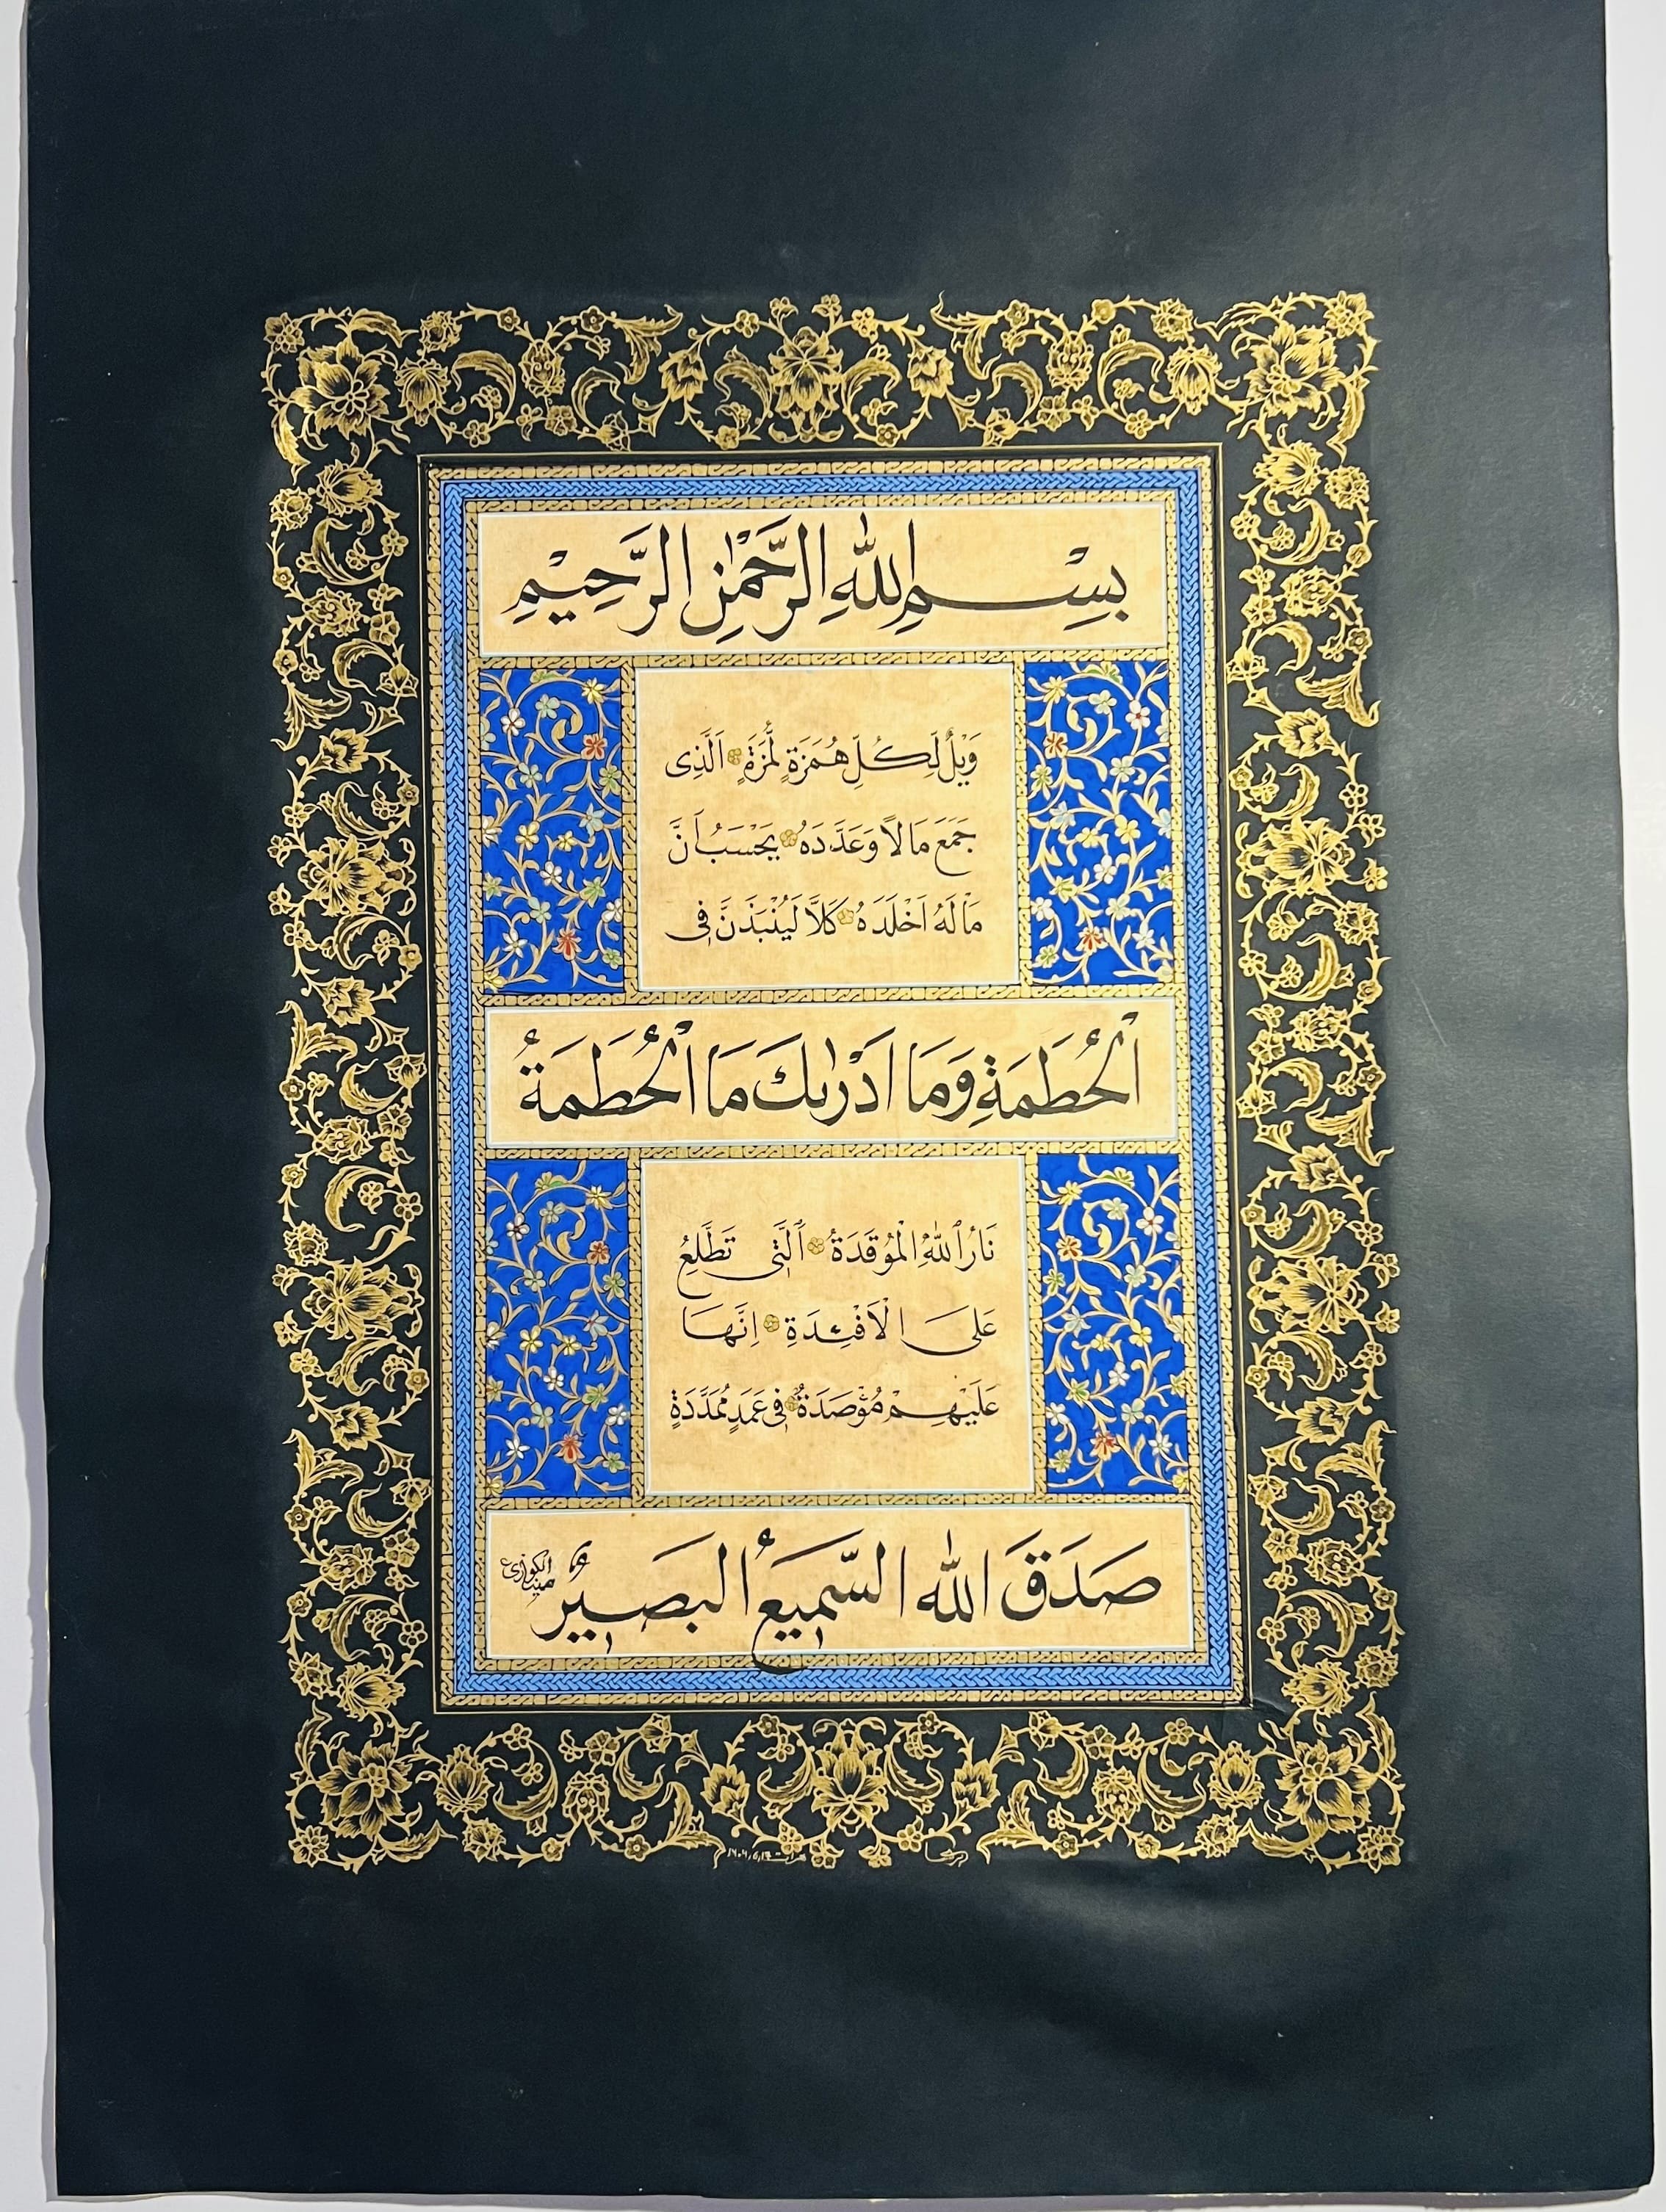 بِسْمِ اللهِ الرَّحْمٰنِ الرَّحِيْمِ
وَيْلٌ لِكُلِّ هُمَزَةٍ لُمَزَةٍ اَلَّذِى
جَمَعَ مَالًا وَعَدَّدَهُ يَحْسَبُ اَنَّ
مَا لَهُ اَخْلَدَهُ كَلَّا لَيُنْبَذَنَّ فِى
الْحُطَمَةِ وَمَا اَدْرٰىكَ مَا الْحُطَمَةُ
نَارُ ٱللّٰهِ الْمُوْقَدَةُ ٱلَّتِى تَطَّلِعُ
عَلَى الْاَفْئِدَةِ اِنَّهَا
عَلَيْهِمْ مُؤْصَدَةٌ فِى عَمَدٍ مُمَدَّدَةٍ
صَدَقَ اللهُ السَّمِيعُ البَصِيرُ